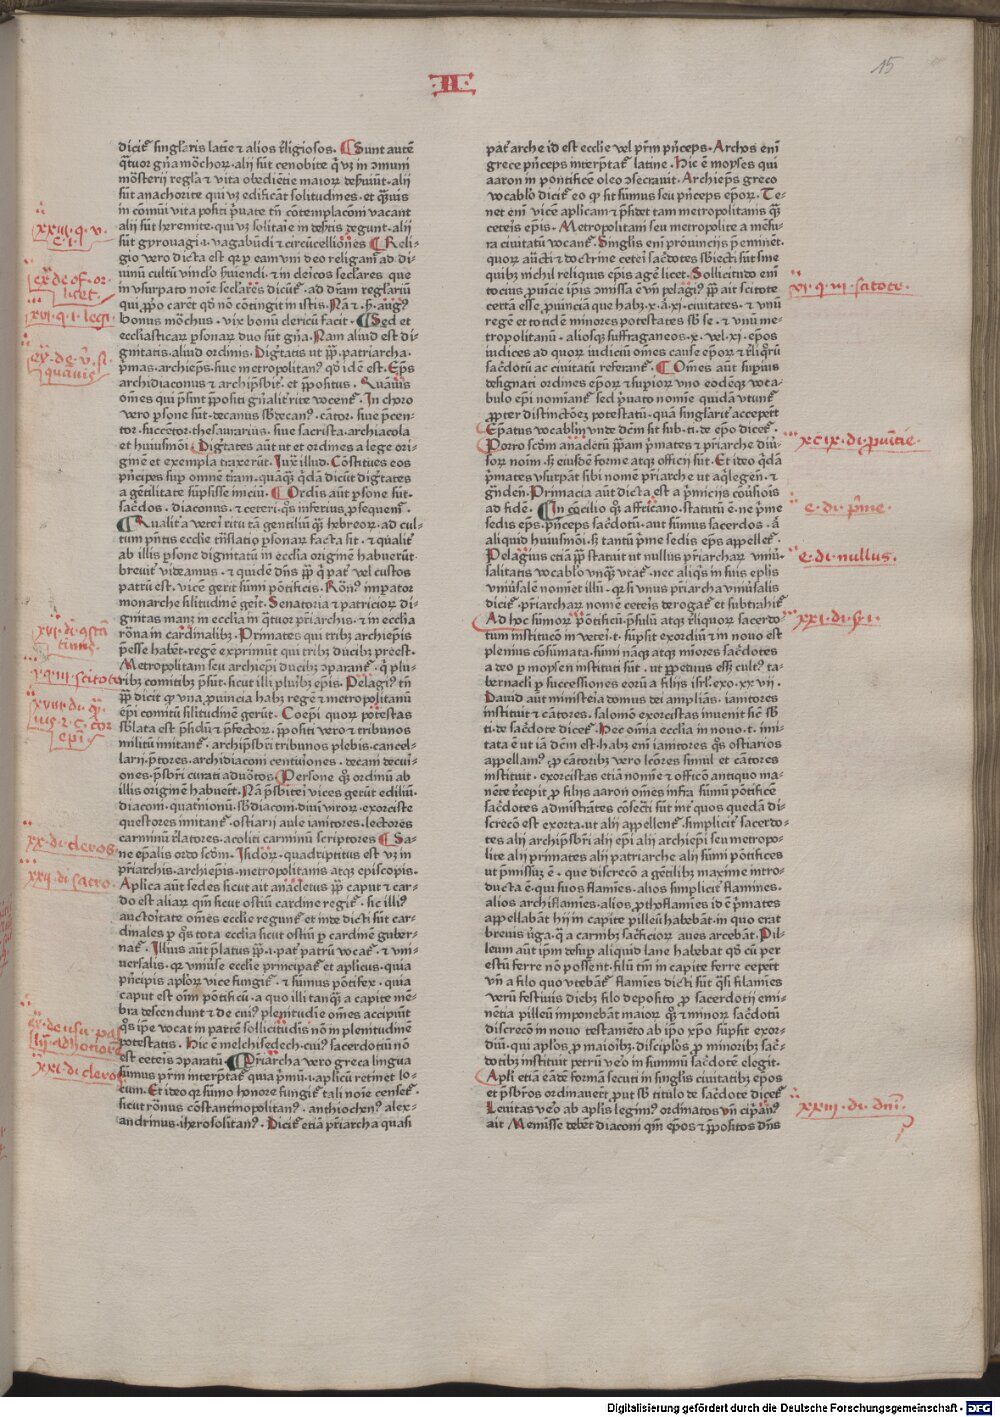 II
15
dicit᷑ singl̃aris latīe ⁊ alios r̃ligiosos. Sunt autē
q̃tuor gñа mōchoꝝ. alij sūt cenobite q̇ vꝫ in ꝯmuni
mōsterij regl̃a ⁊ vita obediētie maioꝝ deſꝰuiūt. alij
sūt anachorite qui vꝫ edificāt solitudines. et q̃̄uis
in cōmūi vita positi p̃uate tñ cōtemplacōni vacant
alij sūt heremite. qui vꝫ solitaīe in dſſ̃tis degunt. alij
sūt gyrouagi .i. vagabūdi ⁊ circūcelliōnes Reli⸗
gio vero dicta est qꝛ ꝑ eam vni deo religamꝰ ad di⸗
uinū cultū vinclo s̃uiendi. ⁊ in dec̄os seclares que
in vsurpato noīe seclares dicūt᷑. ad dr̃am reglariū
qui ꝓpo carēt qd̓ nō cōtingit in istis. Nā ⁊ .s. augꝰ
bonus mōchus. vix bonū clericū facit. Sed et
ecclīasticaꝝ ꝑsonaꝝ duo sūt gña. Nam aliud est di⸗
gnitatis. aliud ordinis. Dignitatis ut pp̄. patriarcha.
p̃mas. archiep̄s. siue metropolitanꝰ. qd̓ idē est. Ep̄s
archidiaconus ⁊ archip̃sbit̄. et p̃positus. Quāuis
omēs qui p̃sunt p̃positi gñalit̃ rite vocent᷑. In choro
vero ꝑsone sūt. decanus sb̓decanꝰ. cātor. siue p̃cen⸗
tor. succētor. thesaurariꝰ. siue sacrista. archiacola
et huiusmōi. Dignitates aūt ut et ordines a lege ori⸗
ginē et exempla traxerūt. Iuxͣ illud. Cōstitues eos
p̃ncipes suꝑ omnē tr̃am. quāq̃ꝫ q̇dā dicūt dignitates
a gētilitate supsisse iniciū. Ordis aūt ꝑsone sūt.
sac̃dos. diaconus. ⁊ ceteri. qͥs inferius ꝑsequemꝰ.
Qualit̃ a veteri ritu tā gentiliū q̃ꝫ hebreoꝝ. ad cul⸗
tum p̃ntis ecclie tñslatio ꝑsonaꝝ facta sit. ⁊ qualit̃
ab illis ꝑsone dignitatū in ecclīa originē habuerūt
breuit̃ videamus. ⁊ quidē dn̄s pp̄ q̇ pat᷑ vel custos
patrū est. vicē gerit sūmi pōtificis. Rōnꝰ impator
monarche silitudinē gerit. Senatoria ⁊ patricioꝝ di⸗
gnitas manꝫ in ecclīa in q̃tuor p̃riarchis. ⁊ in ecclīa
rōna in cardinalibꝫ. Primates qui tribꝫ archiep̄is
p̃esse habēt. regē exprimūt qui tribꝫ ducibꝫ preest.
Metropolitani seu archiep̄i ducibꝫ ꝯparant᷑. q̇ plu⸗
ribꝫ comitibꝫ p̃sūt. sicut illi pluribꝫ ep̄is. Pelagiꝰ tñ
pp̄ dicit qꝛ vna ꝓuincia habꝫ regē ⁊ metropolitanū
ep̄i comitū silitudinē gerūt. Coep̄i quoꝝ potestas
sb̓lata est p̃sidū ⁊ p̃fectoꝝ. p̃positi vero ⁊ tribunos
militū imitant᷑. archip̃sbr̃i tribunos plebis. cancel⸗
larij p̃tores. archidiaconi centuriones. decani decuri⸗
ones. p̃sbr̃i curati aduōtos. Persone qͦꝫ ordinū ab
illis originē habuerūt. Nā p̃sbiteri vices gerūt ediliū.
diaconi. quatrionū. sb̓diaconi. diuī viroꝝ. exorciste
questores imitant᷑. ostiarij aule ianitores. lectores
carminū r̃latores. acoliti carminū scriptores Sa⸗
ne epalis ordo scdm̄. Isidoꝝ. quadriꝑtitus est vꝫ in
p̃riarchis. archiep̄is. metropolitanis atqꝫ episcopis.
Aplica aūt sedes sicut ait anacletus pp̄ caput ⁊ car⸗
do est aliaꝝ qm̄ sicut ostiū cardine regit᷑. sic illiꝰ
auctoritate omēs ecclie regunt᷑ et inde dicti sūt car⸗
dinales ꝑ qͦs tota ecclīa sicut ostiū ꝑ cardinē guber⸗
nat᷑. Illius aūt p̃latus pp̄ .i. pat᷑ patrū vocat᷑. ⁊ vni⸗
uersalis. qꝛ vniuerse ecclie principat᷑ et aplicus. quia
p̃ncipis aploꝝ vice fungit᷑. ⁊ sūmus pōtifex. quia
caput est oīm pōtificū. a quo illi tanq̃ꝫ a capite mē⸗
bra descendunt ⁊ de cuiꝰ plenitudīe omēs accipiūt
qͦs ip̄e vocat in partē sollicitudis nō in plenitudinē
potestatis. Hic ē melchisedech. cuiꝰ sacerdotiū nō
est ceteris ꝯparatū Pr̃iarcha vero greca lingua
sūmus pr̃m interp̃tat᷑ quia p̃mū .i. aplicū retinet lo⸗
cum. Et ideo qꝛ sūmo honore fungit᷑ tali noīe censet᷑.
sicut rōnus cōstantinopolitanꝰ. anthiochenꝰ. alex⸗
andrinus. iherosolitanꝰ. Dicit᷑ etiā p̃riarcha quasi
pat᷑ arche id est ecclie vel pr̃m p̃nceps. Archos enī
grece p̃nceps interp̃tat᷑ latine. Hic ē moyses qui
aaron in pontificē oleo ꝯsecrauit. Archiep̃s greco
vocablo dicit᷑ eo qͩ sit sūmus seu p̃nceps ep̄oꝝ. Te⸗
net enī vicē aplicam ⁊ p̃sidet tam metropolitanis q̃ꝫ
ceteris ep̄is. Metropolitani seu metropolite a mēsu⸗
ra ciuitatū vocant᷑. Singlis enī prouincijs p̃eminēt.
quoꝝ auctī ⁊ doctrine ceteri sac̃dotes sb̓iecti sūt sine
quibꝫ nichil reliquis ep̄is agē licet. Sollicitudo enī
tocius ꝓuincie ip̄is ꝯmissa ē vñ pelagiꝰ pp̄ ait scitote
certā esse. ꝓuinciā que habꝫ .x. ⁊ .xi. ciuitates. ⁊ vnū
regē et totidē minores potestates sb̓ se. ⁊ vnū me⸗
tropolitanū. aliosqꝫ suffraganeos .x. vel .xi. ep̄os
iudices ad quoꝝ iudiciū omēs cause ep̄oꝝ ⁊ r̃liq̇rū
sac̃dotū ac ciuitatū referant᷑. Om̄es aūt supius
designati ordines ep̄oꝝ ⁊ supioꝝ vno eodēqꝫ voca⸗
bulo ep̄i nomīant᷑ sed p̃uato nomīe quidā vtunt᷑
ꝓpter distinctōeꝫ potestatū. quā singlarit̃ acceperūt
Epatus vocabl̃m vnde dcm̄ sit sub .ti. de ep̄o dicet᷑.
Porro scdm̄ anacletū pp̄am p̃mates ⁊ p̃riarche diu⸗
soꝝ noīm. sꝫ eiusdē forme atqꝫ officij sūt. Et ideo q̇dā
p̃mates vsurpāt sibi nomē p̃riarche ut aq̇legeñ. ⁊
gñdeñ. Primacia aūt dicta est a p̃micijs cōuersiōis
ad fidē. In cōcilio qͦꝫ affricano. statutū ē. ne p̃me
sedis ep̄s. p̃nceps sac̃dotū. aut sūmus sacerdos. ā
aliquid huiusmōi. sꝫ tantū p̃me sedis ep̄s appellet᷑.
Pelagius etiā pp̄ statuit ut nullus p̃riarchaꝝ vniũ⸗
salitatis vocablo vnq̃ꝫ vtat᷑. nec aliq̇s in suis ep̄lis
vniũsalē nominet illū. qꝛ si vnus p̃riarcha vniũsalis
dicit᷑. p̃riarchaꝝ nomē ceteris derogat᷑ et subtrahit᷑
Ad hoc sūmoꝝ pōtificū. p̃sulū atqꝫ r̃liquoꝝ sacerdo⸗
tum institucō in veteri .t. supsit exordiū ⁊ in nouo est
plenius cōsūmata. sūmi nāqꝫ atqꝫ miores sac̃dotes
a deo ꝑ moysen instituti sūt. ut ꝑpetuus eēt cultꝰ ta⸗
bernacli ꝑ successiones eorū a filijs isrl̄. exo .xxvii.
Dauid aūt ministeria domus dei amplias. ianitores
instituit ⁊ cātores. salomō exorcistas inuenit sic̄ sb̓
ti. de sac̃dote dicet᷑. Hec omīa ecclīa in nouo .t. imi⸗
tata ē ut iā dcm̄ est. habꝫ enī ianitores qͦs ostiarios
appellamꝰ. ꝓ cātoribꝫ vero lcōres simul et cātores
instituit. exorcistas etiā nomīe ⁊ officō antiquo ma⸗
nēte r̃cepit. ꝓ filijs aaron omēs infra sūmū pōtificē
sac̃dotes admistrātes cōsecti sūt int̃ quos quedā di⸗
screcō est exorta. ut alij appellent᷑. simplicit̃ sacerdo⸗
tes alij archip̃sbr̃i alij ep̄i alij archiep̄i seu metropo⸗
lite alij primates alij patriarche alij sūmi pōtifices
ut p̃missuꝫ ē. que discrecō a gētilibꝫ maxime intro⸗
ducta ē. qui suos flamīes. alios simplicit̃ flamines.
alios archiflamīes. alios ꝓthoflamīes id ē p̃mates
appellabāt hij in capite pilleū habebāt. in quo erat
breuis v̓ga. q̇ a carnibꝫ sac̃ficioꝝ aues arcebāt. Pil⸗
leum aūt ip̄m desup aliquid lane habebat qd̓ cū per
estū ferre nō possent. filū tm̄ in capite ferre ceperūt
vñ a filo quo vtebāt᷑ flamīes dicti sūt q̄si filamīes
verū festiuis diebꝫ filo deposito ꝓ sacerdotij emi⸗
nētia pilleū imponebāt maioꝝ qͦꝫ ⁊ minoꝝ sac̃dotū
discrecō in nouo testamēto ab ip̄o xp̄o sūpsit exor⸗
diū. qui aplos ꝓ maioibꝫ. disciplos ꝓ minoribꝫ sac̃⸗
dotibꝫ instituit petrū ve̓o in summū sac̃dotē elegit.
Apli etiā eādē formā secuti in singlis ciuitatibꝫ ep̄os
et p̃sbr̃os ordinauerūt. ꝓut sb̓ titulo de sac̃dote dicet᷑
Leuitas ve̓o ab aplis legimꝰ ordinatos vñ cip̃anꝰ
ait Meminisse debēt diaconi qm̄ ep̄os ⁊ p̃positos dn̄s
xxiiii. q. v.
c. i.
ex̄ de of. or.
licet.
xvi. q. i. legi.
ex̄. de. v̓. si.
quāuis
xvi. di. qstā
tinus.
.v. q. iii. scitote
xviii. di. q̄
iuis. ⁊. c. cor
epi.
xx. di. cleros
xxii. di. sacro.
ex. de usu. pal.
xxi. di. cleros
vi. q. iii. scitote.
xcix. di. ꝓuincie.
e. di. p̃me.
e. di. nullus.
xxi. di. §. i.
xxiii. di. dñi.
Digitalisierung gefördert durch die Deutsche Forschungsgemeinschaft - DFG